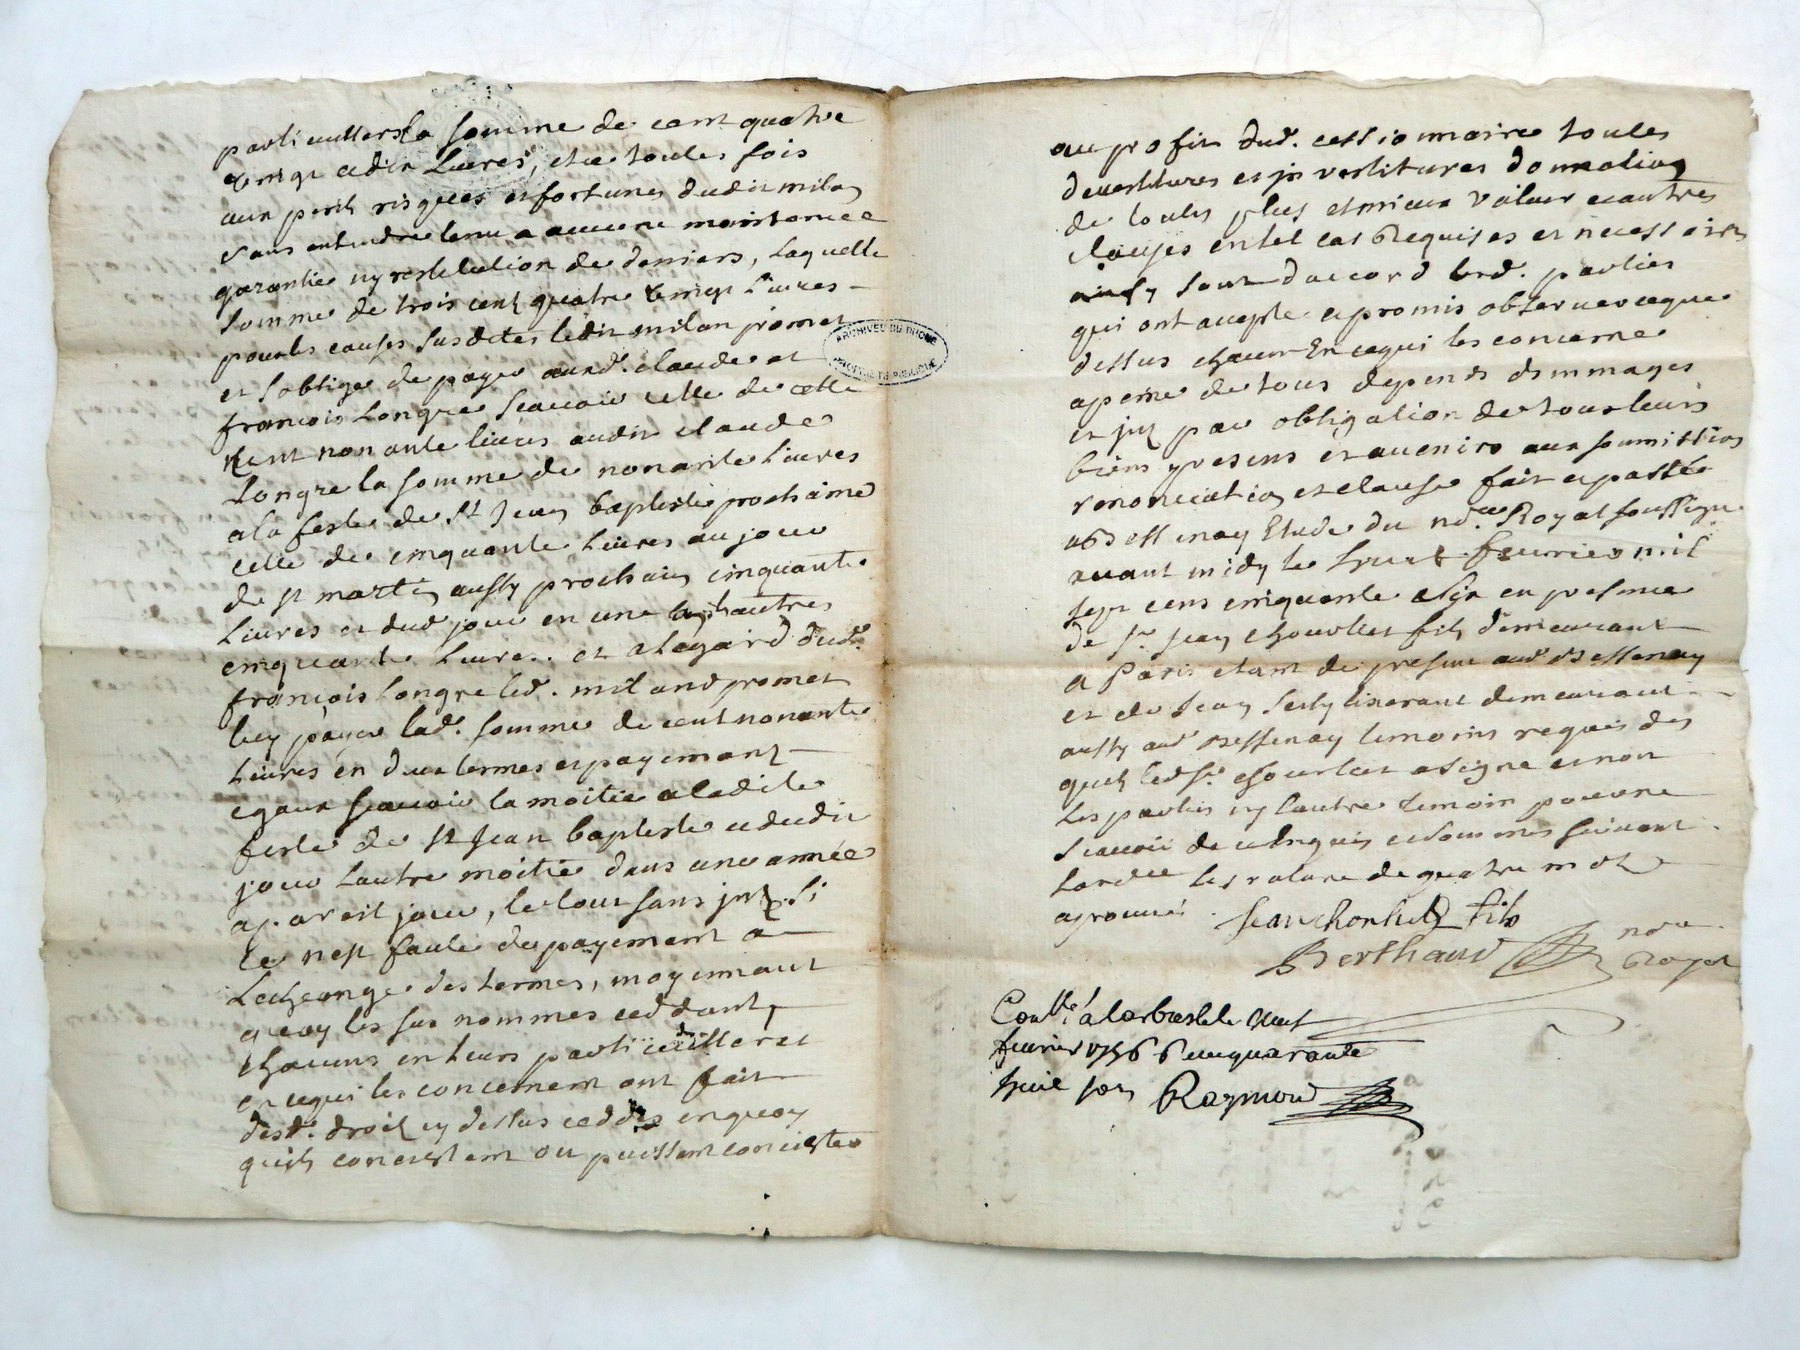 particulliers la somme de cent quatre
vingt et dix Livres, et ce toutes fois
aux perils risques et fortunes dudit milan
sans entendre tenu a aucune maintenue
garantie ny restitution de deniers, Laquelle
somme de trois cent quatre vingt Livres
pour les causes susdites ledit milan promet
et s'oblige de payer auxd. claude et
francois Longre scavoir celle de
cent nonante livres audit claude
Longre la somme de nonante Livres
a la feste de St Jean baptiste prochaine
celle de cinquante Livres au jour
de st martin aussy prochain cinquante
Livres et dud jour en une
cinquante Livres. et a legard dud.
françois Longre led. milan promet
luy payer lad. somme de cent nonante
Livres en deux termes et payement
egaux scavoir la moitie a ladite
feste de St Jean baptiste et dudit
jour Lautre moitie dans une année
a pareil jour, le tout sans
ce n'est faute de payement a
Lecheange des termes, moyennant
quoy les sus nommes ceddants
chacuns en leurs particullieret
en ce qui les concernent ont fait
desd. droits cy dessus ceddés en quoy
quils concistent ou puissent concister
au profit dud. cessionnaire toutes
devestitures et jnvestitures donnation
de toutes plus et mieux valuer et autres
clauses en tel cas Requises et necessaires
ainsy sont d'accord lesd. parties
qui ont accepte et promis observer ce que
dessus chacun En ce qui les concerne
a peine de tous depends dommages
et par obligation de tous leurs
biens presens et avenirs aux soumissions
renonciation et clause fait et passé
a Bessenay Etude du no.re Royal soussigné
avant midy le huit fevrier mil
sept cens cinquante et six en presence
de Sr Jean fils demeurant
a Paris etant de present aud. Bessenay
et de Jean demeurant
aussy aud Bessenay temoins requis des
quels led Sr a signé et non
Les parties ny lautre temoin pour ne
scavoir de ce Enquis et sommés suivant
Lord.ce de quatre mots
aprouvés. Jean fils
Berthaud no.re
Royal
Con.lle à Larbresle le huit
fevrier 1756 quarante
huit sols Raymond
ARCHIVES DU RHONE